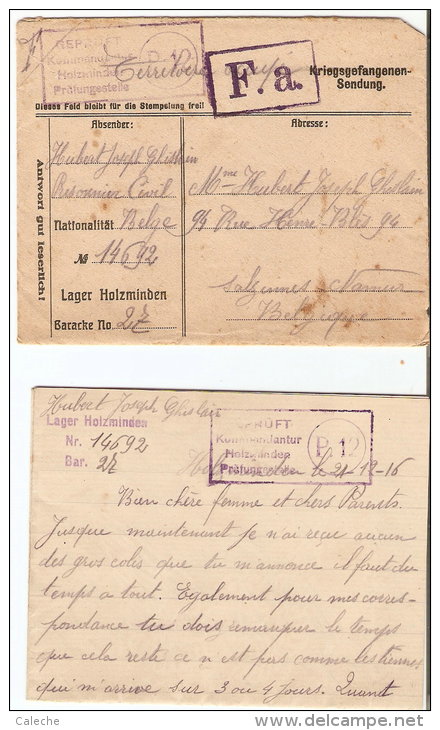 GEPRÜFT
Kommandantur
Holzminden
Prüfungsstelle
P. 12
F. a.
Kriegsgefangenen-
Sendung.
Dieses Feld bleibt für die Stempelung frei!
Absender:
Hubert Joseph Ghislain
Prisonnier Civil
Nationalität Belge
№ 14692
Lager Holzminden
Baracke No 27
Antwort gut leserlich!
Adresse:
Mme Hubert Joseph Ghislain
94 Rue Henri Blès 94
Salzennes Namur
Belgique
Hubert Joseph Ghislain
Lager Holzminden
Nr. 14692
Bar. 27
GEPRÜFT
Kommandantur
Holzminden
Prüfungsstelle
P 12
le 21-12-16
Bien chère femme et chers Parents.
Jusque maintenant je n'ai reçue aucun
des gros colis que tu m'annonce il faut du
temps a tout. Egalement pour mes corres-
pondance tu dois remarquer le temps
que cela reste ce n est pas comme les tiennes
qui m'arrive sur 3 ou 4 jours. Quant
Caleche
www.delcampe.net